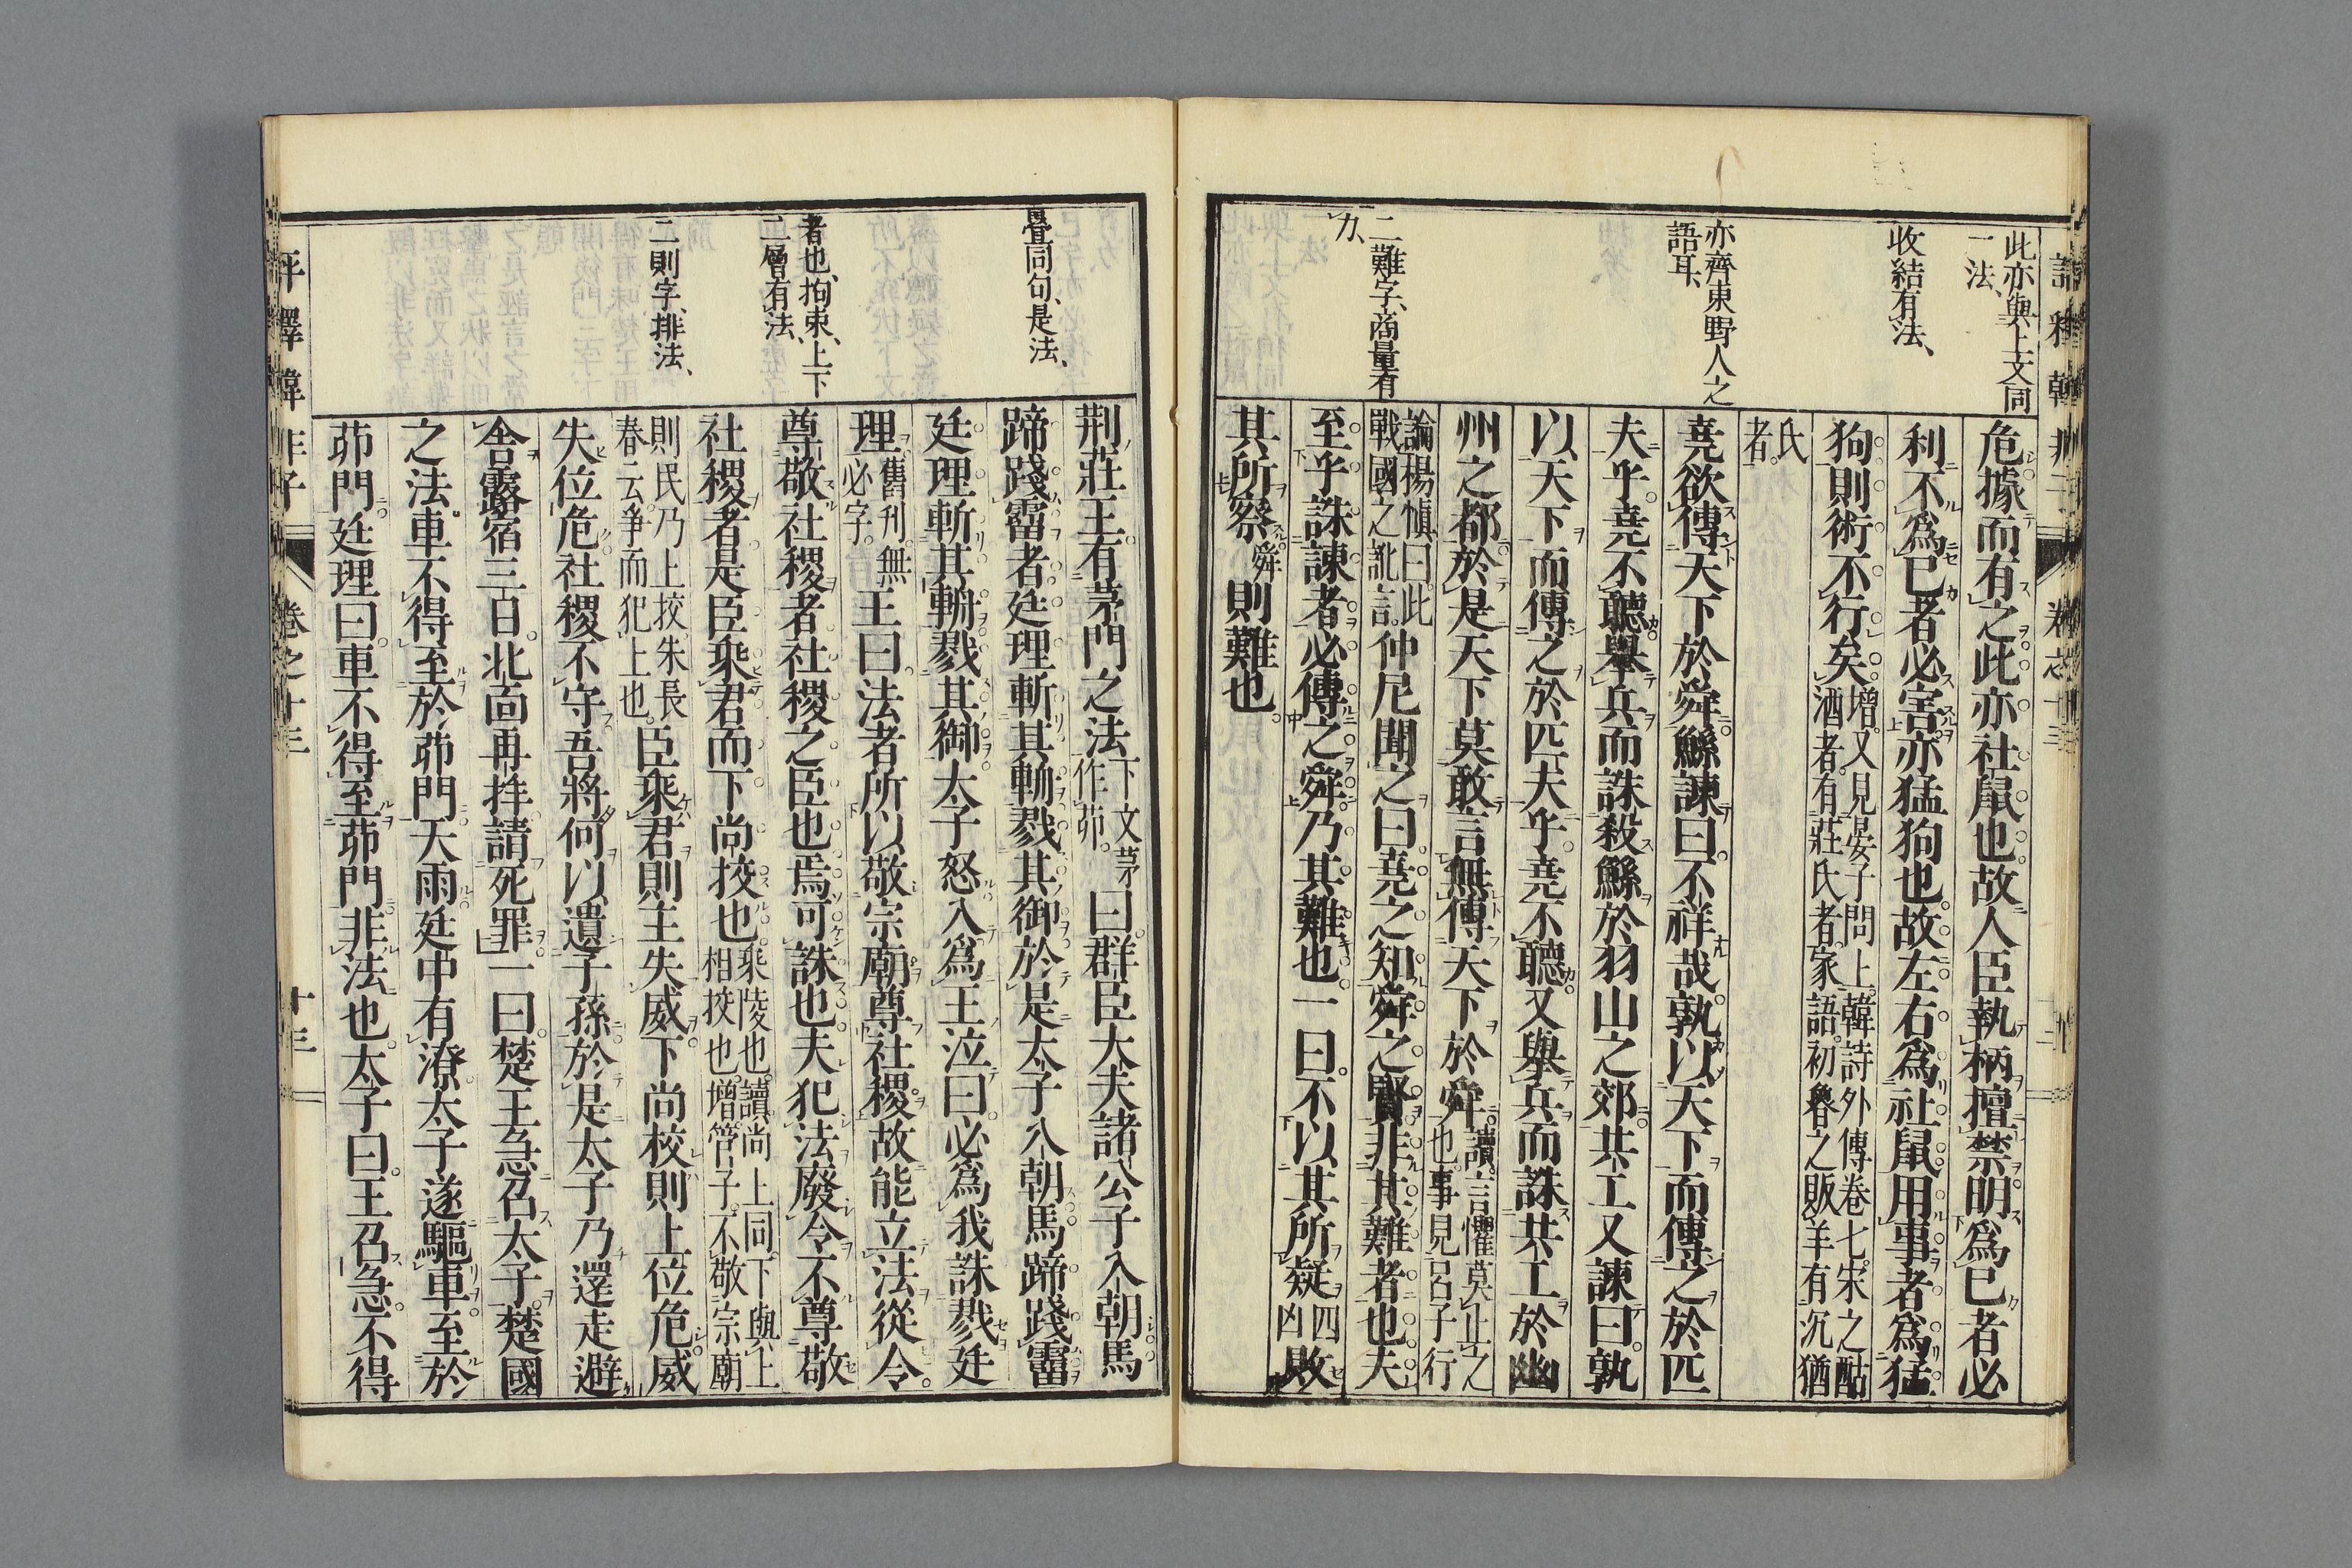 此亦與上文同
一法、
收結有法、
亦齊東野人之
語耳、
二難字、商量有
力、
危據而有之此亦社鼠也故人臣執柄擅禁明爲已者必
利不爲已者必害亦猛狗也故左右爲社鼠用事者爲猛
狗則術不行矣增又見晏子問上韓詩外傳卷七宋之酤
酒者有莊氏者家語初魯之販羊有沉猶
氏
者
堯欲傳天下於舜鯀諫曰不祥哉孰以天下而傳之於匹
夫乎堯不聽舉兵而誅殺鯀於羽山之郊共工又諫曰孰
以天下而傳之於匹夫乎堯不聽又舉兵而誅共工於幽
州之都於是天下莫敢言無傳天下於舜讀言懼莫止之
也事見呂子行
論楊愼曰此
戰國之訛言仲尼聞之曰堯之知舜之賢非其難者也夫
至乎誅諫者必傳之舜乃其難也一曰不以其所疑敗
四
凶
其所察舜則難也
評釋韓非子 卷之十三 十三
疊同句、是法、
者也、拘束、上下
二層有法、
二則字、排法、
荆莊王有茅門之法下文茅
作茆曰群臣大夫諸公子入朝馬
蹄踐霤者廷理斬其輈戮其御於是太子入朝馬蹄踐霤
廷理斬其輈戮其御太子怒入爲王泣曰必爲我誅戮廷
理舊刊無
必字王曰法者所以敬宗廟尊社稷故能立法從令
尊敬社稷者社稷之臣也焉可誅也夫犯法廢令不尊敬
社稷者是臣乘君而下尚挍也乘陵也讀尚上同下與上
相挍也增管子不敬宗廟
則民乃上挍朱長
春云爭而犯上也臣乘君則主失威下尚校則上位危威
失位危社稷不守吾將何以遺子孫於是太子乃還走避
舍露宿三日北面再拜請死罪一曰楚王急召太子楚國
之法車不得至於茆門天雨廷中有潦太子遂驅車至於
茆門廷理曰車不得至茆門非法也太子曰王召急不得